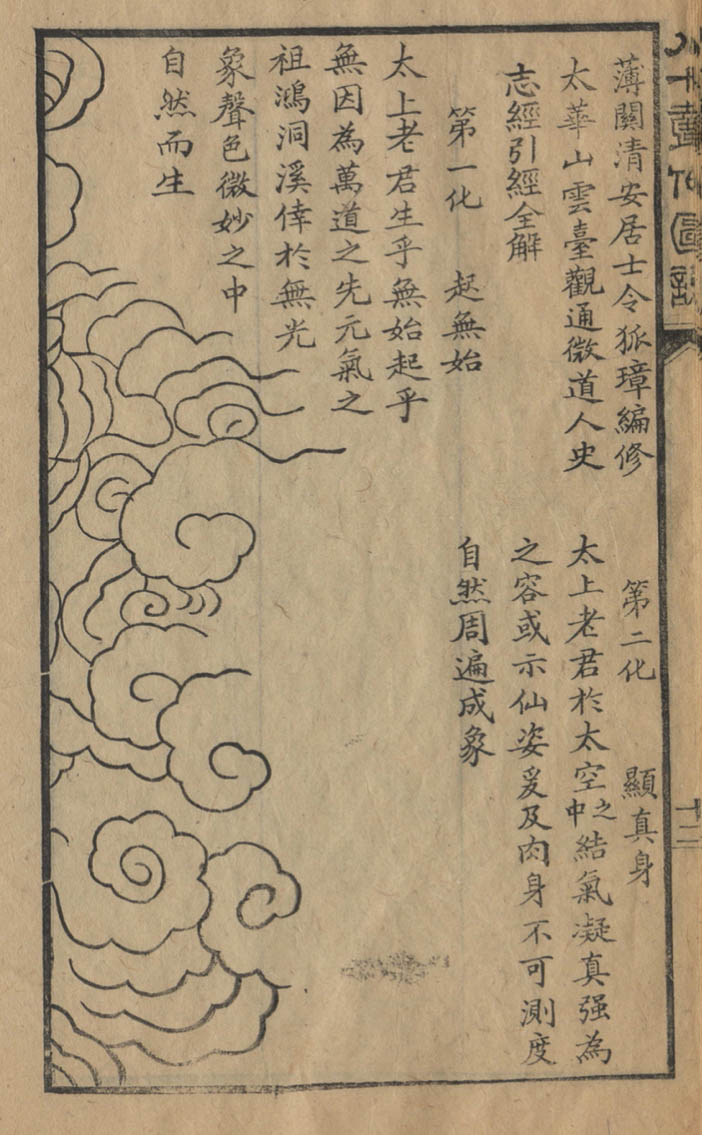 薄關清安居士令狐璋編修
太華山雲臺觀通微道人史
志經引經全解
第一化 起無始
太上老君生乎無始起乎
無因為萬道之先元氣之
祖鴻洞溪倖於無光
象聲色微妙之中
自然而生
第二化 顯真身
太上老君於太空之中結氣凝真强為
之容或示仙姿爰及肉身不可測度
自然周遍成象
十二